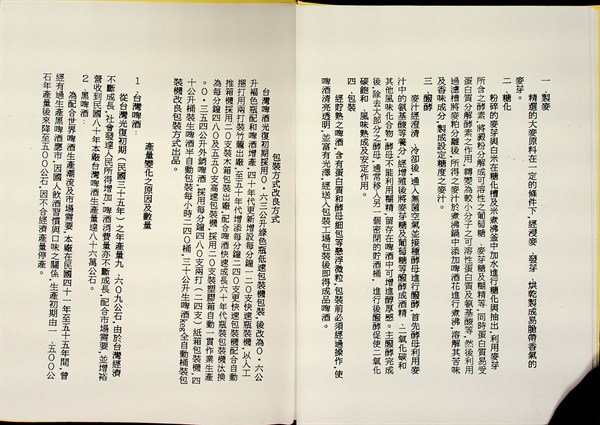 一 製麥
精選的大麥原料在一定的條件下,經浸麥、發芽、烘乾製成易脆帶香氣的
麥芽。
二、糖化
粉碎的麥芽與白米在糖化槽及米煮沸釜中加水進行糖化與抽出,利用麥芽
所含之酵素,將澱粉分解成可溶性之葡萄糖、麥芽糖及糊精等,同時蛋白質易受
蛋白質分解酵素之作用,轉變為較小分子之可溶性蛋白質及氨基酸等,然後利用
過濾槽將麥粕分離後,所得之麥汁於煮沸鍋中添加啤酒花進行煮沸,溶解其苦味
及香味成分,製成設定糖度之麥汁。
三、醱酵
麥汁經澄清、冷卻後,通入無菌空氣並接種酵母進行醱酵,首先酵母利用麥
汁中的氨基酸等養分,經增殖後將麥芽糖及葡萄糖等醱酵成酒精、二氧化碳和
其他風味化合物,酵母不能利用糊精,留存在啤酒中可增進醇厚感。主醱酵完成
後,除去大部分之酵母,通常移入另一個密閉的貯酒桶,進行後醱酵促使二氧化
碳飽和、風味熟成及安定作用。
四、包裝
經貯熟之啤酒,含有蛋白質和酵母細胞等懸浮微粒,包裝前必須經過操作,使
啤酒清亮透明,並富有光澤,經送入包裝工場包裝後即得成品啤酒。
包裝方式改良方式
台灣啤酒光復初期採用0.六三公升綠色瓶低速包裝機包裝,後改為0.六公
升褐色瓶配和啤酒增產,四十年代更新增設每分鐘一二0支快速瓶裝機,以人工
捆打用兩打裝竹簍出廠,至五十年代增添每分鐘二四0支更快速包裝機配合自動
推箱機採用二0支裝木箱包裝出廠,配合啤酒快速成長六十年代瓶裝包裝機汰換
為每分鐘四八0及五五0支高速包裝機,採用二0支裝塑膠箱自動一貫作業生產
。0.三五四公升外銷啤酒,採用每分鐘四八0支兩打(二四支)紙箱包裝機,四
十公升桶裝生啤酒半自動包裝每小時二四0桶,三十公升生啤酒keg全自動桶裝包
裝機改良包裝方式出品。
產量變化之原因及數量
1.台灣啤酒:
從台灣光復初期(民國三十五年)之年產量九、六0九公石,由於台灣經濟
不斷成長,社會發達人民所得增加,啤酒消費量亦不斷成長,配合市場需要,並增裕
營收到民國八十年本廠台灣啤酒生產量達八十六萬公石。
2.黑啤酒:
為配合世界啤酒生產潮流及市場需要,本廠在民國四十一年至五十五年間,曾
經有過生產黑啤酒應市,因國人飲酒習慣與口味之關係,生產初期由一、五00公
石年產量後來降至五00公石,因不合經濟產量停產。